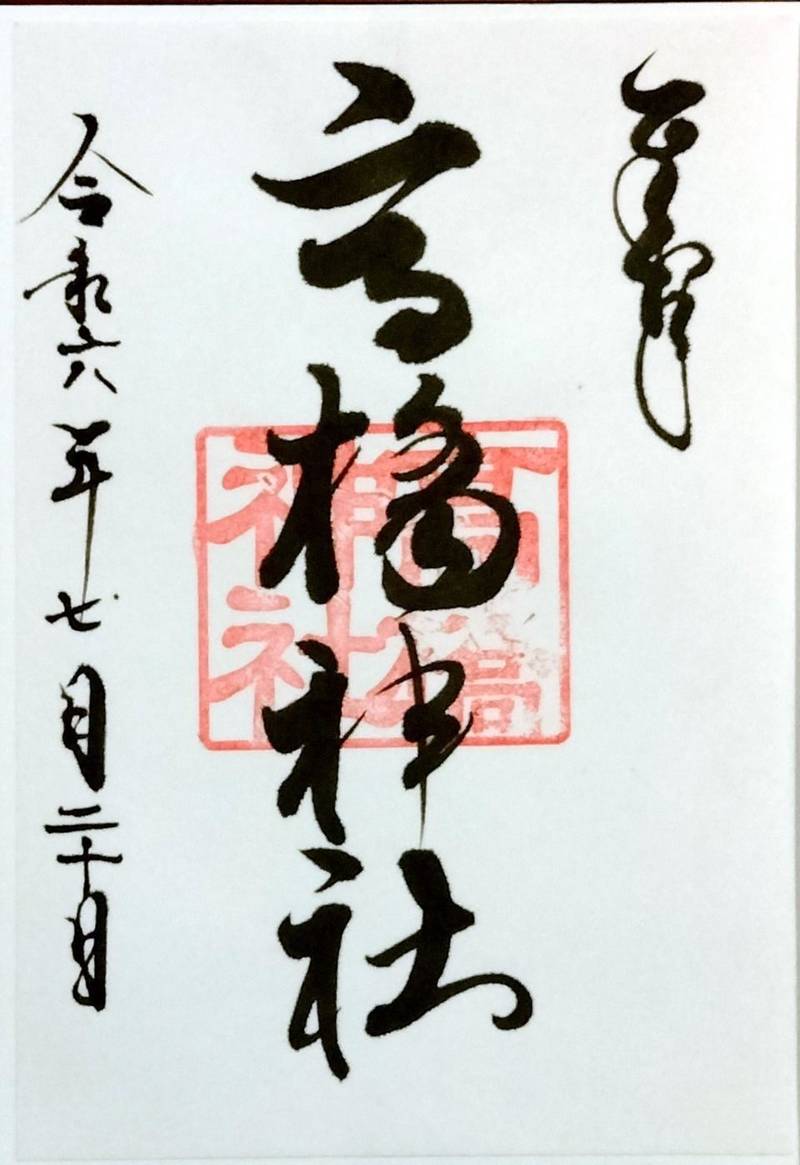 奉拝
高橋神社
高橋
神社
令和六年七月二十日